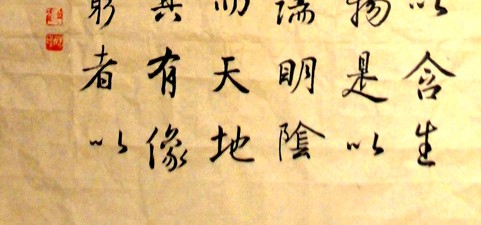 以含生
物是以
端明陰
而天地
其有像
者以